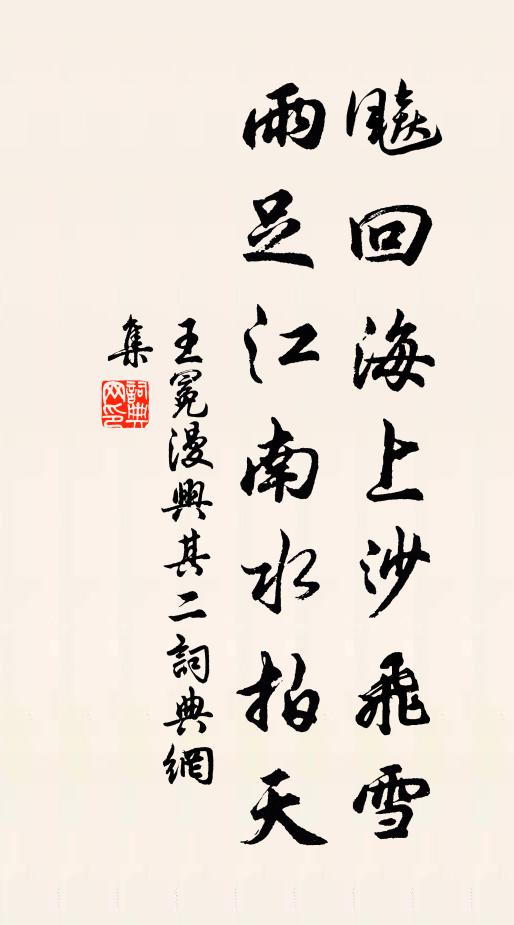 飈回海上沙飛雪
雨足江南水拍天
王冕漫興其二詞典網
集
詞典
网印